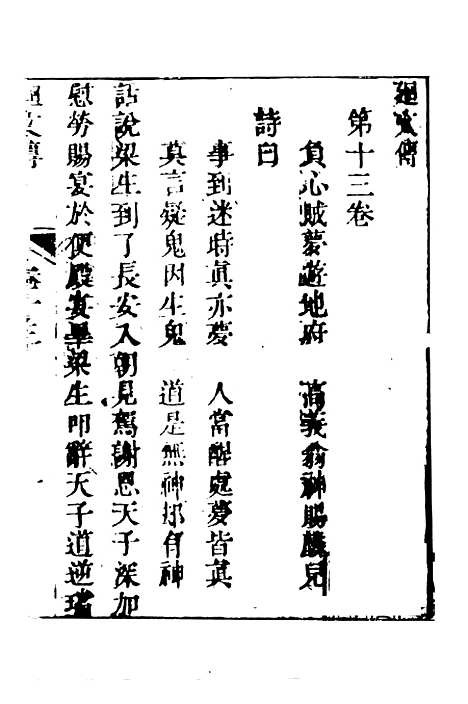 廻文傳
第十三卷
負心賊夢遊地府　高義翁神賜麟兒
詩曰
事到迷時真亦夢　人當醒處夢皆真
莫言疑鬼因生鬼　道是無神那有神
話說梁生到了長安入朝見駕謝恩天子深加
慰勞賜宴於便殿宴畢梁生叩辭天子道逆璠
廻文傳　卷十三　一